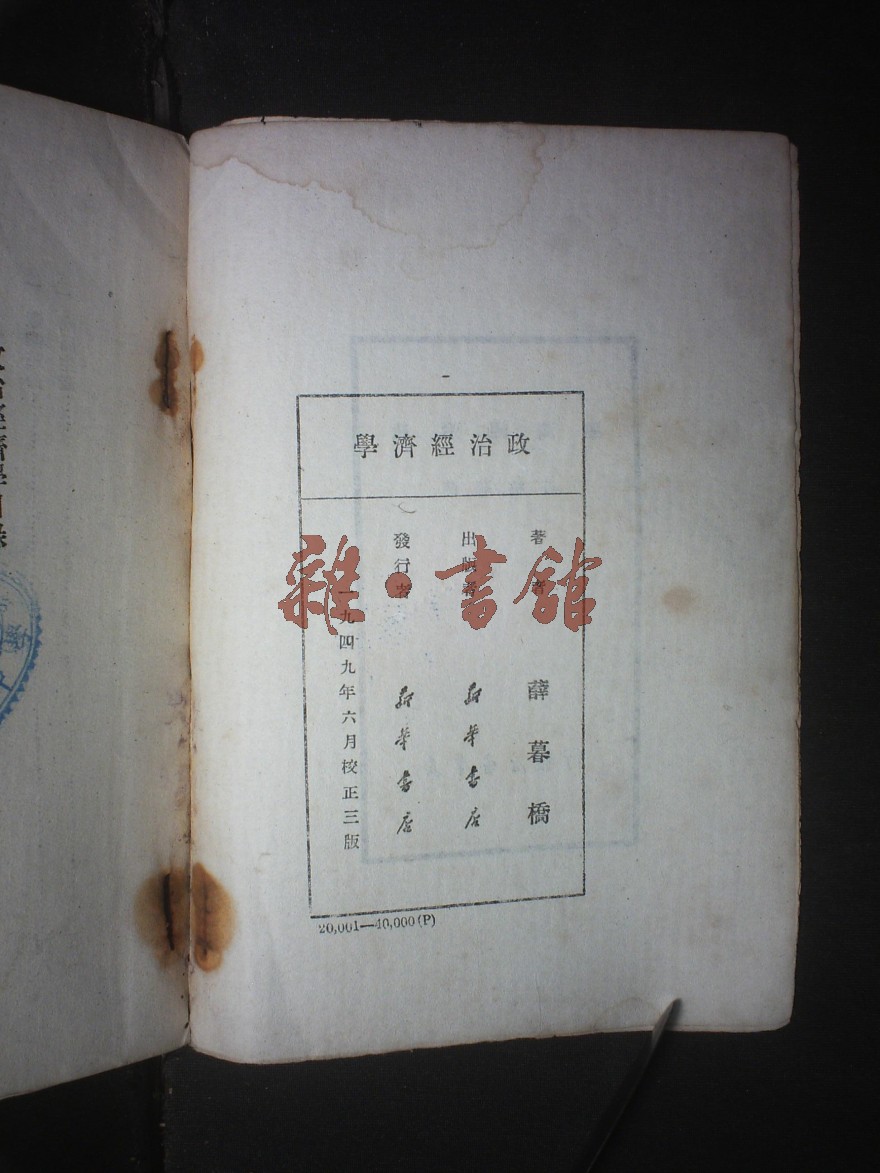 政治經濟學
著者 薛暮橋
出版者 新華書店
發行者 新華書店
一九四九年六月校正三版
20,001—40,000(P)
雜·書館